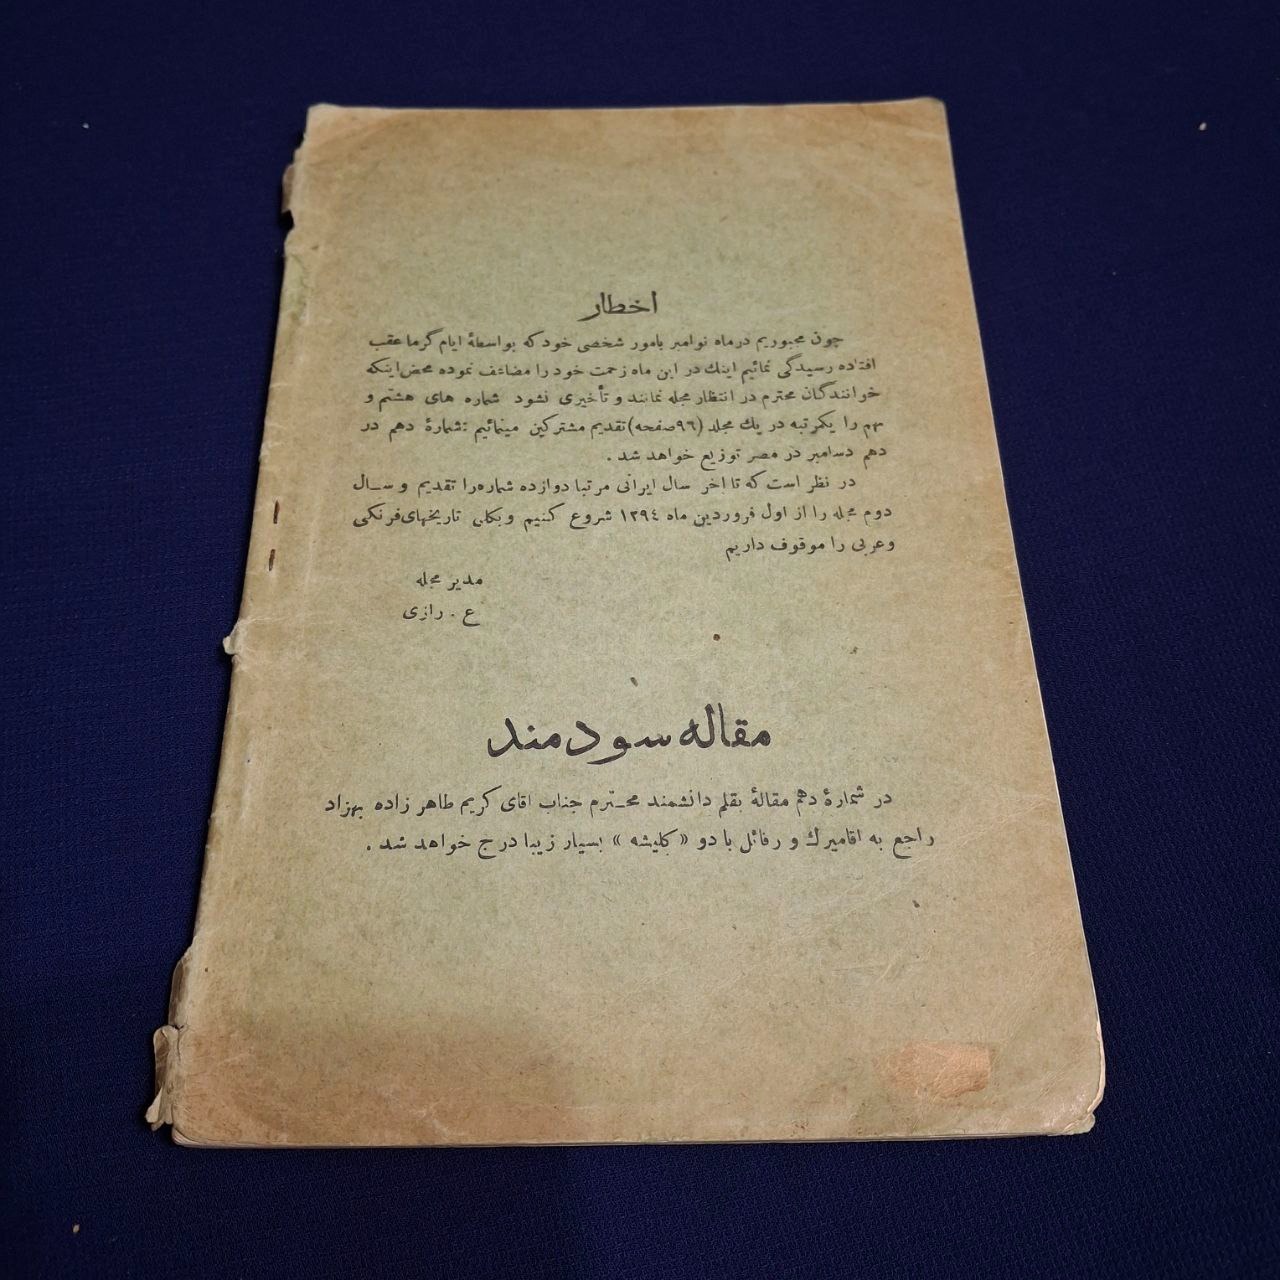 اخطار
چون مجبوریم درماه نوامبر بامور شخصی خود که بواسطهٔ ایام گرما عقب
افتاده رسیدگی نمائیم اینك در این ماه زحمت خود را مضاعف نموده محض اینکه
خوانندگان محترم در انتظار مجله نمانند و تأخیری نشود شماره های هشتم و
نهم را یکمرتبه در یك مجلد (۹۶صفحه) تقدیم مشترکین مینمائیم :شمارهٔ دهم در
دهم دسامبر در مصر توزیع خواهد شد .
در نظر است که تا اخر سال ایرانی مرتبا دوازده شماره را تقدیم و سـال
دوم مجله را از اول فروردین ماه ١٢٩٤ شروع کنیم و بکلی تاریخهای فرنکی
وعربی را موقوف داریم
مدیر مجله
ع . رازی
مقاله سودمند
در شمارهٔ دهم مقالهٔ بقلم دانشمند محـترم جناب اقای کریم طاهر زاده بهزاد
راجع به اقامیرك و رفائل با دو «کلیشه» بسیار زیبا درج خواهد شد .